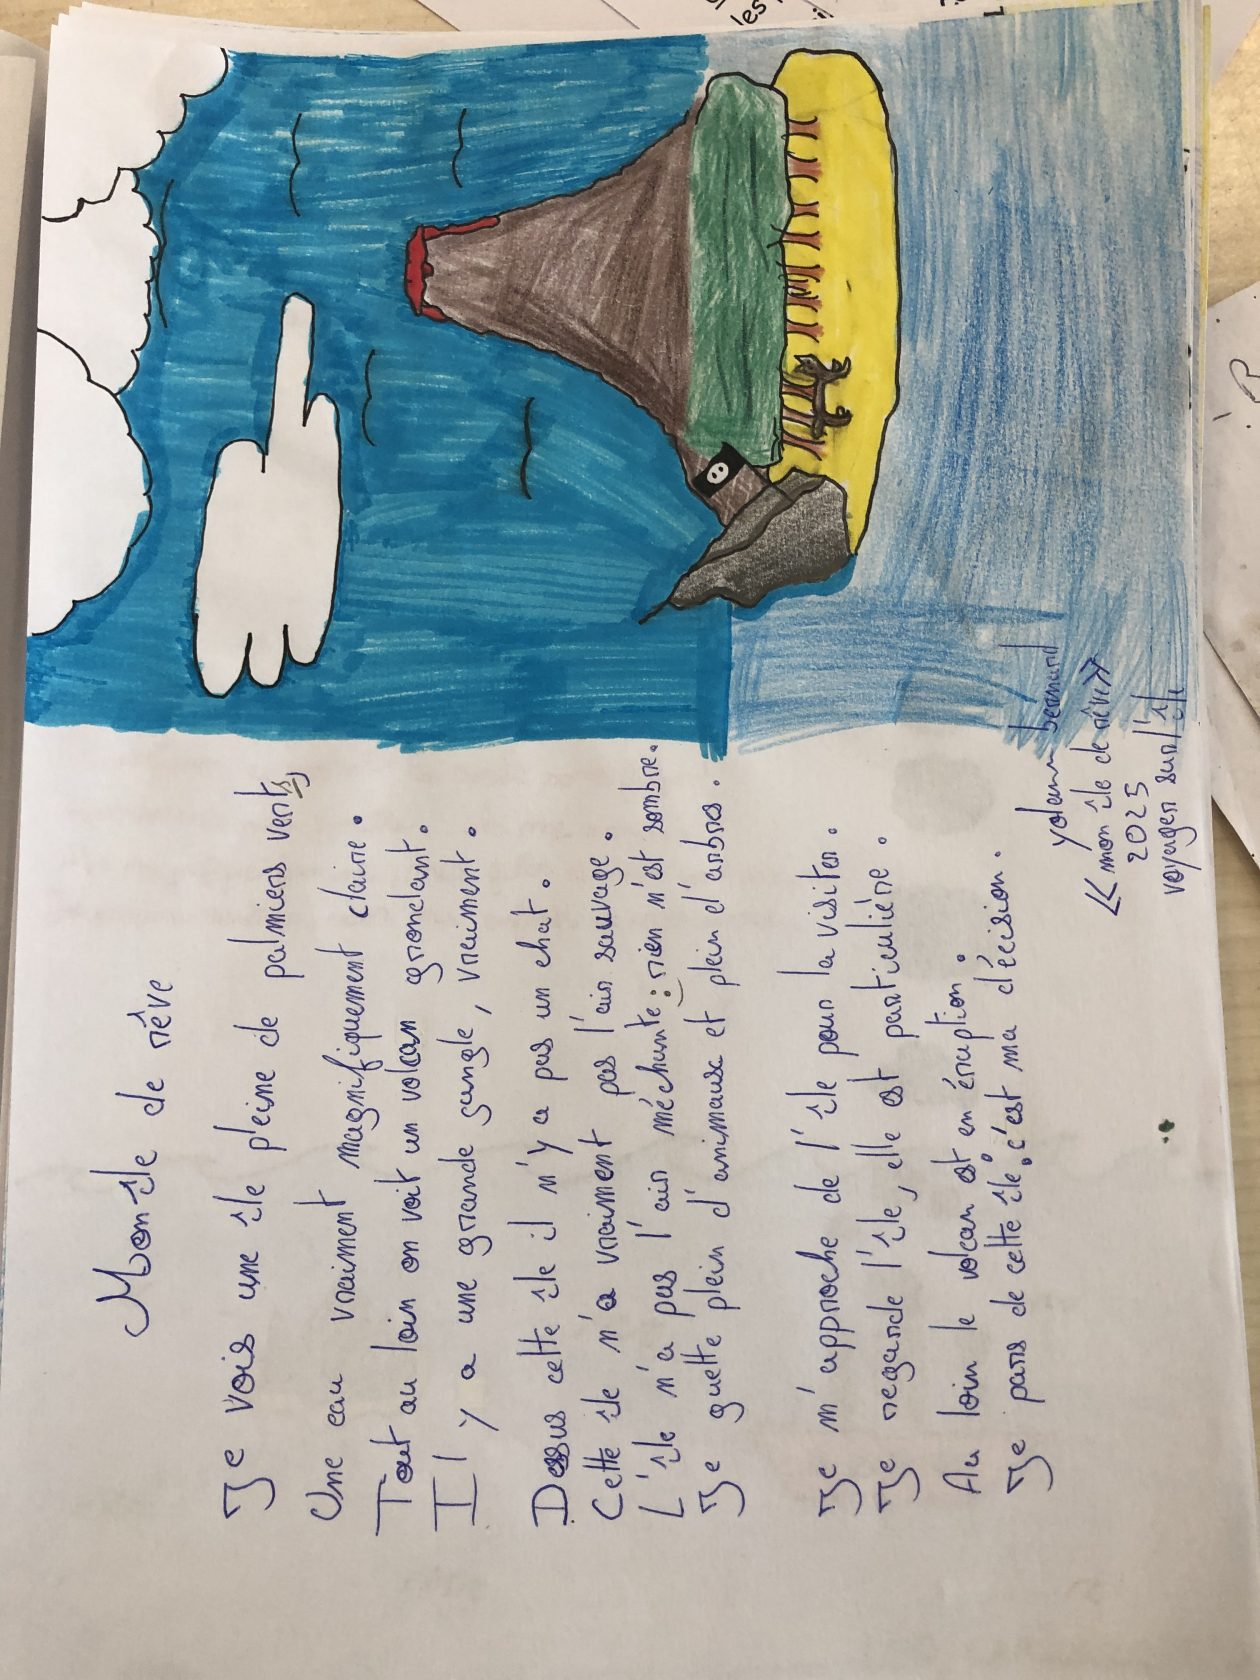 Mon île de rêve
Je vois une île pleine de palmiers verts,
Une eau vraiment magnifiquement claire.
Tout au loin on voit un volcan gronclant.
Il y a une grande jungle, vraiment.
Dessus cette île il n'y a pas un chat.
Cette île n'a vraiment pas l'air sauvage.
L'île n'a pas l'air méchante : rien n'est sombre.
Je guette plein d'animaux et plein d'arbres.
Je m'approche de l'île pour la visiter.
Je regarde l'île, elle est particulière.
Au loin le volcan est en éruption.
Je pars de cette île : c'est ma décision.
yolann bernard
« mon île de rêve »
2025
voyager sur l'île
les